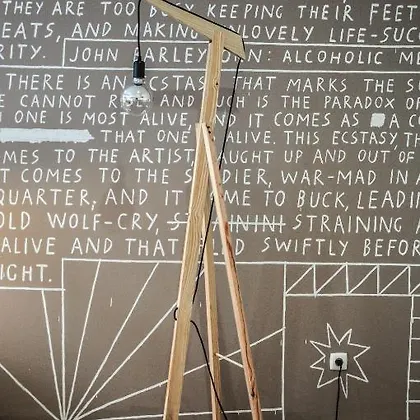 THEY ARE TOO BUSY KEEPING THEIR FEET
EATS, AND MAKING LOVELY LIFE-SUC
RITY. JOHN BARLEYCORN: ALCOHOLIC ME
THERE IS AN ECSTASY THAT MARKS THE
E CANNOT RISE. AND SUCH IS THE PARADOX O
ONE IS MOST ALIVE, AND IT COMES AS A CO
THAT ONE ALIVE. THIS ECSTASY, TH
MES TO THE ARTIST, CAUGHT UP AND OUT OF
T COMES TO THE SOLDIER, WAR-MAD IN A
QUARTER; AND IT CAME TO BUCK, LEADIN
OLD WOLF-CRY, STRAINING A
ALIVE AND THAT FLED SWIFTLY BEFOR
IGHT.